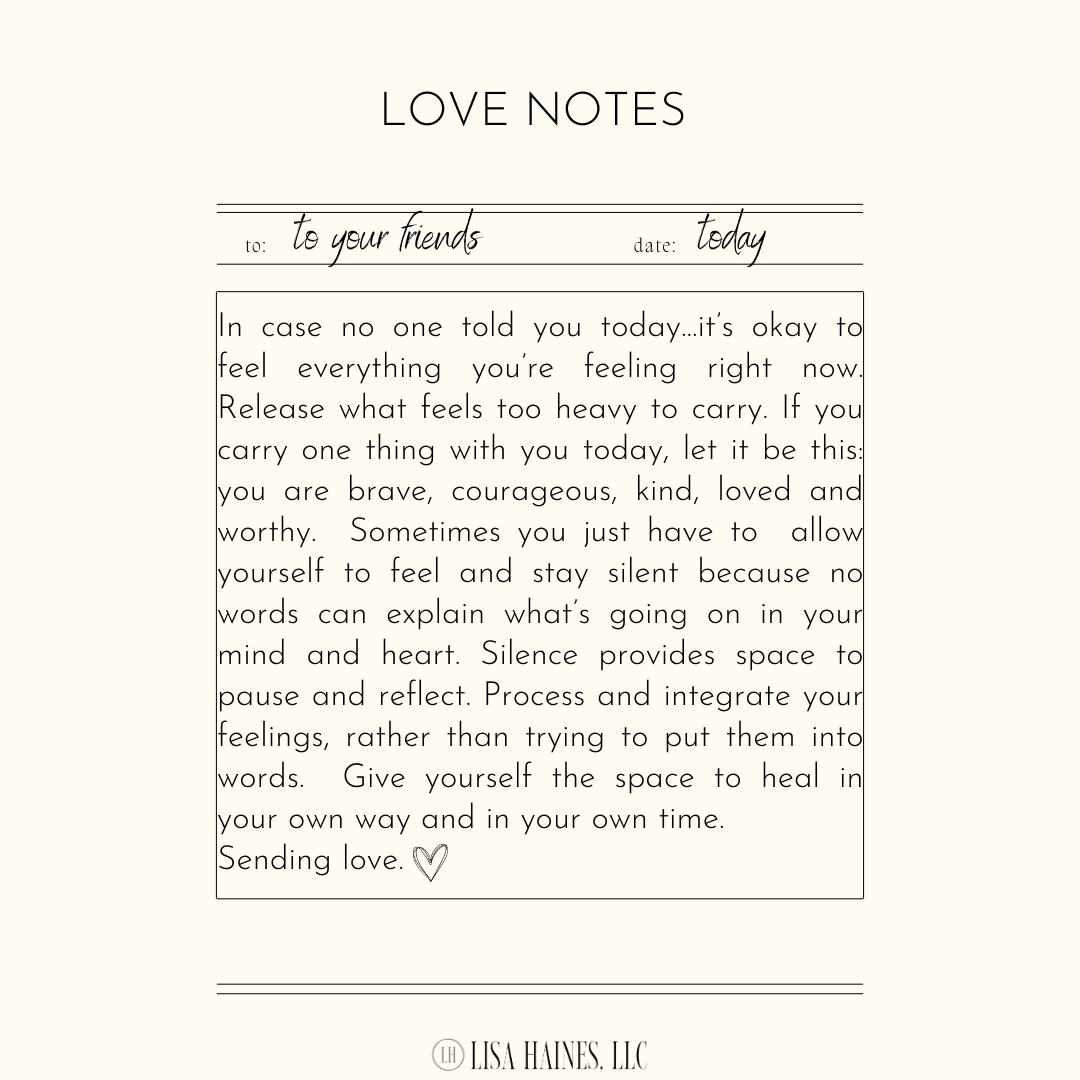 LOVE NOTES
to: to your friends date: today
In case no one told you today...it's okay to
feel everything you're feeling right now.
Release what feels too heavy to carry. If you
carry one thing with you today, let it be this:
you are brave, courageous, kind, loved and
worthy.  Sometimes you just have to  allow
yourself to feel and stay silent because no
words can explain what's going on in your
mind and heart. Silence provides space to
pause and reflect. Process and integrate your
feelings, rather than trying to put them into
words.  Give yourself the space to heal in
your own way and in your own time.
Sending love.
LH LISA HAINES, LLC